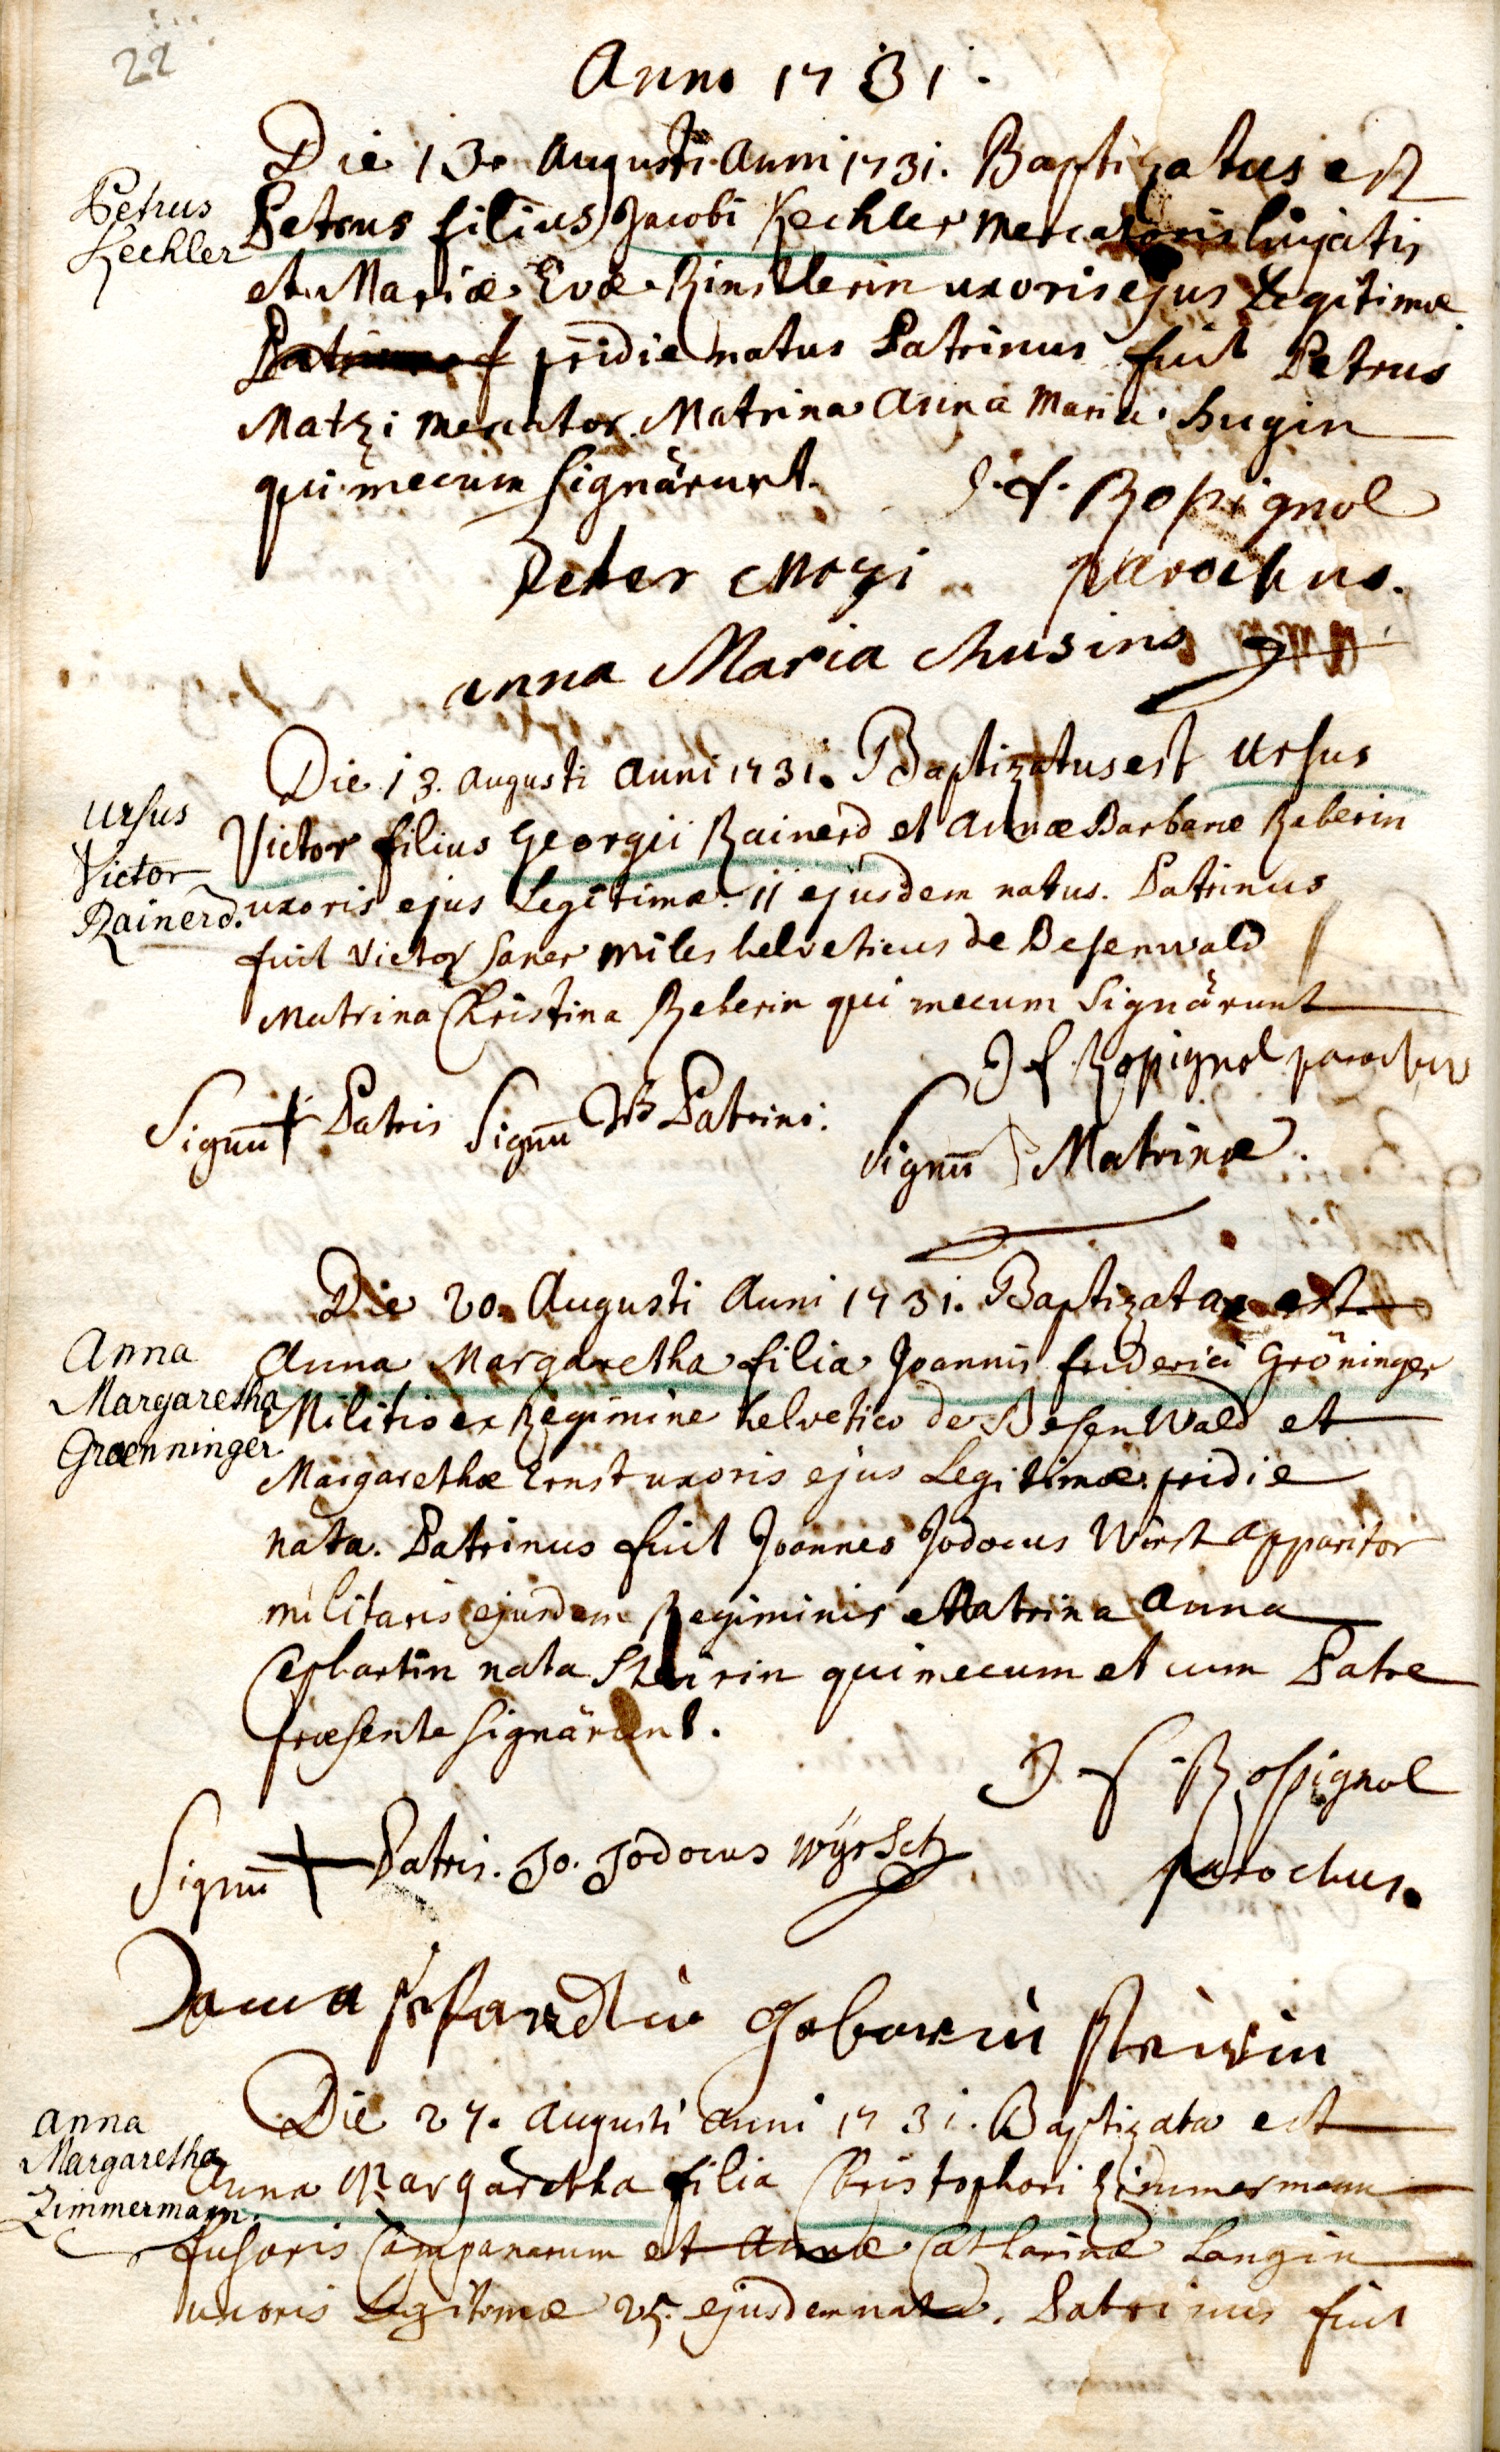 22
Anno 1731.
Die 13. Augusti Anni 1731. Baptizatus est
Petrus
Kechler
Petrus filius Jacobi Kechler Mercatoris hujatis
et Mariæ Evæ Rinstlerin uxoris ejus Legitimæ
pridie natus Patrinus fuit Petrus
Matzi Mercator. Matrina Anna Maria hugin
qui mecum signârunt.
J. f. Rossignol
Peter Mozi parochus.
anna Maria
Die 13. Augusti Anni 1731. Baptizatus est Ursus
Ursus
Victor
Rainerd.
Victor filius Georgii Rainerd et Annæ Barbaræ Reberin
uxoris ejus Legitimæ. 11 ejusdem natus. Patrinus
fuit Victor Saner Miles helveticus de Besenwald
Matrina Christina Reberin qui mecum signârunt
J f Rossignol parochus
Signū + Patris Signū Patrini.
Signū Matrinæ.
Die 20. Augusti Anni 1731. Baptizata est
Anna
Margaretha
Groenninger
Anna Margaretha filia Joannis friderici Gröninger
Militis ex Regimine helvetico de Besenwald et
Margarethæ Ernst uxoris ejus Legitimæ pridie
nata. Patrinus fuit Joannes Jodocus Wirst apparitor
militaris ejusdem Regiminis Matrina Anna
nata Steirin qui mecum et cum Patre
præsente signârunt.
J f Rossignol
Signū + Patris. Jo. Jodocus Wÿrsch
parochus.
Die 27. Augusti Anni 1731. Baptizata est
Anna
Margaretha
Zimmermann.
Anna Margaretha filia Christophori Zimmermann
fusoris Campanarum et Annæ Catharinæ Langin
uxoris Legitimæ 25. ejusdem nata. Patrinus fuit